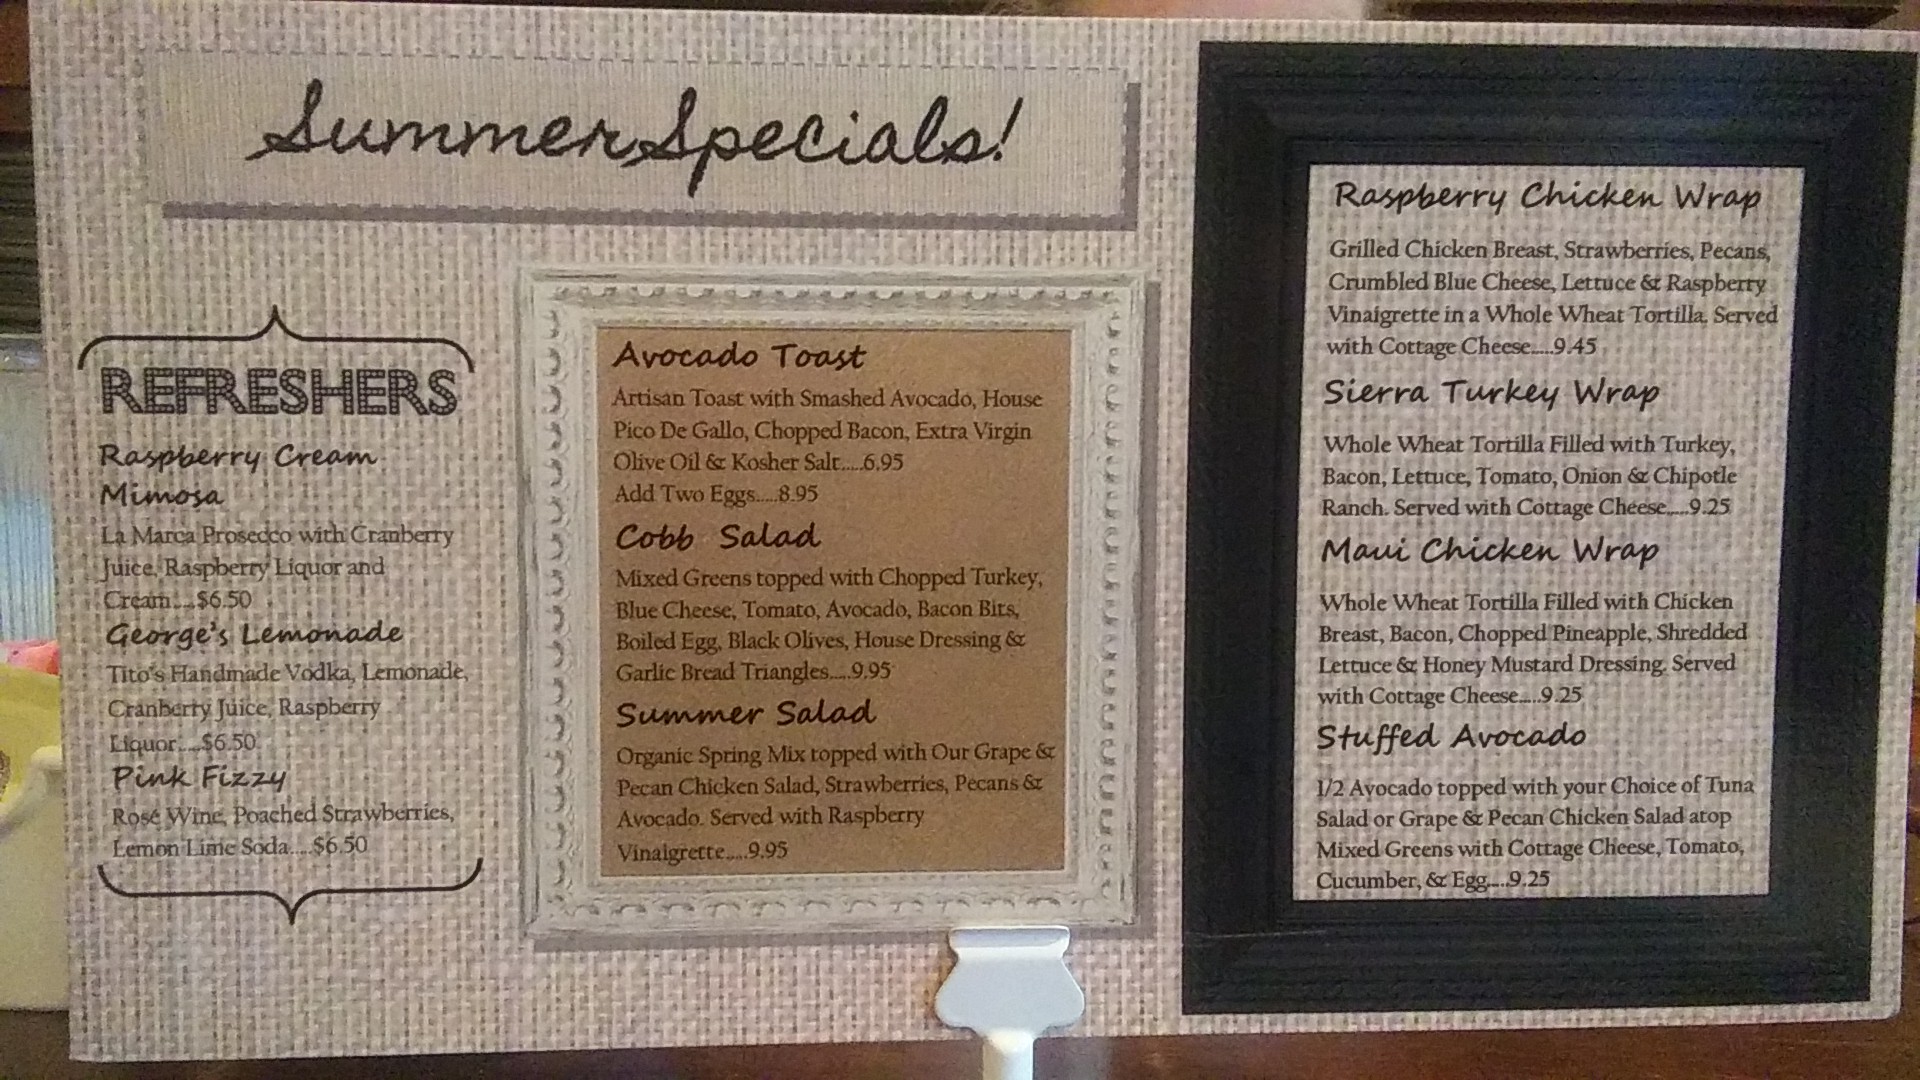 Summer Specials!
REFRESHERS
Raspberry Cream
Mimosa
La Marca Prosecco with Cranberry
Juice, Raspberry Liquor and
Cream....$6.50
George's Lemonade
Tito's Handmade Vodka, Lemonade,
Cranberry Juice, Raspberry
Liquor....$6.50
Pink Fizzy
Rosé Wine, Poached Strawberries,
Lemon Lime Soda....$6.50
Avocado Toast
Artisan Toast with Smashed Avocado, House
Pico De Gallo, Chopped Bacon, Extra Virgin
Olive Oil & Kosher Salt.....6.95
Add Two Eggs.....8.95
Cobb Salad
Mixed Greens topped with Chopped Turkey,
Blue Cheese, Tomato, Avocado, Bacon Bits,
Boiled Egg, Black Olives, House Dressing &
Garlic Bread Triangles.....9.95
Summer Salad
Organic Spring Mix topped with Our Grape &
Pecan Chicken Salad, Strawberries, Pecans &
Avocado. Served with Raspberry
Vinaigrette.....9.95
Raspberry Chicken Wrap
Grilled Chicken Breast, Strawberries, Pecans,
Crumbled Blue Cheese, Lettuce & Raspberry
Vinaigrette in a Whole Wheat Tortilla. Served
with Cottage Cheese.....9.45
Sierra Turkey Wrap
Whole Wheat Tortilla Filled with Turkey,
Bacon, Lettuce, Tomato, Onion & Chipotle
Ranch. Served with Cottage Cheese.....9.25
Maui Chicken Wrap
Whole Wheat Tortilla Filled with Chicken
Breast, Bacon, Chopped Pineapple, Shredded
Lettuce & Honey Mustard Dressing. Served
with Cottage Cheese.....9.25
Stuffed Avocado
1/2 Avocado topped with your Choice of Tuna
Salad or Grape & Pecan Chicken Salad atop
Mixed Greens with Cottage Cheese, Tomato,
Cucumber, & Egg.....9.25